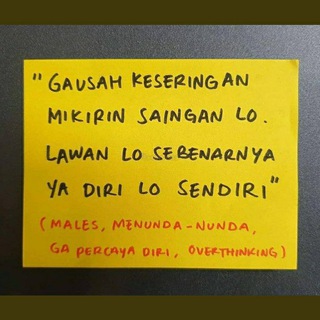 "GAUSAH KESERINGAN
MIKIRIN SAINGAN LO.
LAWAN LO SEBENARNYA
YA DIRI LO SENDIRI"
(MALES, MENUNDA-NUNDA,
GA PERCAYA DIRI, OVERTHINKING)